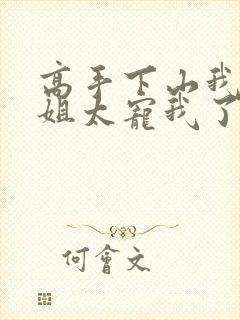 高手下山我
姐太寵我了
何會文